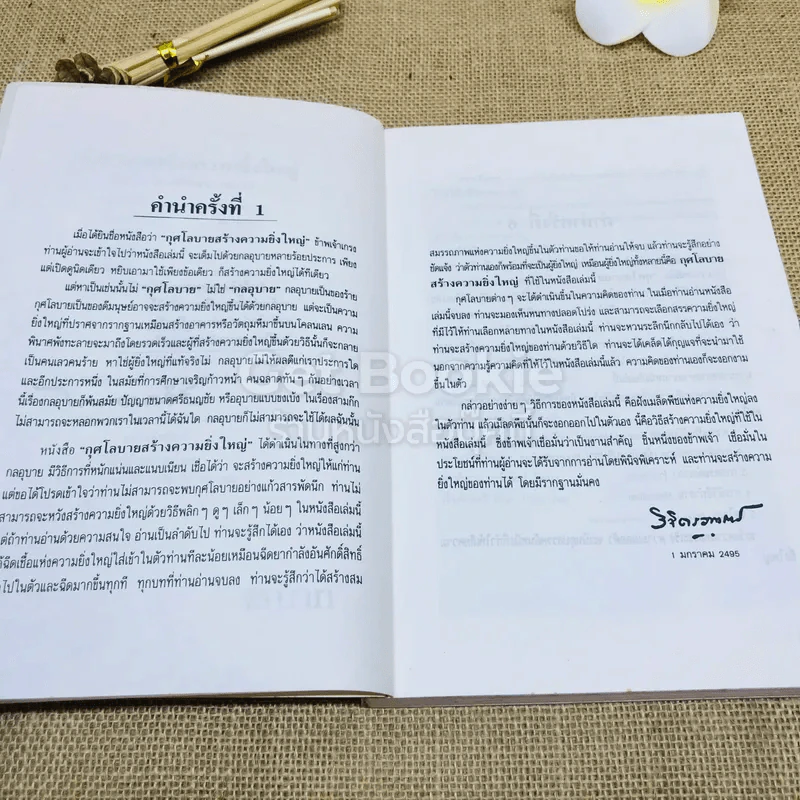 คำนำครั้งที่ 1
เมื่อได้ยินชื่อหนังสือว่า "กุศโลบายสร้างความยิ่งใหญ่" ข้าพเจ้าเกรง
ท่านผู้อ่านจะเข้าใจไปว่าหนังสือเล่มนี้ จะเต็มไปด้วยกลอุบายหลายร้อยประการ เพียง
แต่เปิดดูนิดเดียว หยิบเอามาใช้เพียงข้อเดียว ก็สร้างความยิ่งใหญ่ได้ทีเดียว
แต่หาเป็นเช่นนั้นไม่ "กุศโลบาย" ไม่ใช่ "กลอุบาย" กลอุบายเป็นของร้าย
กุศโลบายเป็นของดีมนุษย์อาจจะสร้างความยิ่งใหญ่ขึ้นได้ด้วยกลอุบาย แต่จะเป็นความ
ยิ่งใหญ่ที่ปราศจากรากฐานเหมือนสร้างอาคารหรือวัตถุมหึมาขึ้นบนโคลนเลน ความ
พินาศพังทะลายจะมาถึงโดยรวดเร็วและผู้ที่สร้างความยิ่งใหญ่ขึ้นด้วยวิธีนั้นก็จะกลาย
เป็นคนเลวคนร้าย หาใช่ผู้ยิ่งใหญ่ที่แท้จริงไม่ กลอุบายไม่ให้ผลดีแก่เราประการใด
และอีกประการหนึ่ง ในสมัยที่การศึกษาเจริญก้าวหน้า คนฉลาดทันๆ กันอย่างเวลา
นี้เรื่องกลอุบายก็พ้นสมัย ปัญญาขนาดศรีธนญชัย หรืออุบายแบบขงเบ้ง ในเรื่องสามก๊ก
ไม่สามารถจะหลอกพวกเราในเวลานี้ได้ฉันใด กลอุบายก็ไม่สามารถจะใช้ได้ผลฉันนั้น
หนังสือ "กุศโลบายสร้างความยิ่งใหญ่" ได้ดำเนินในทางที่สูงกว่า
กลอุบาย มีวิธีการที่หนักแน่นและแนบเนียน เชื่อได้ว่า จะสร้างความยิ่งใหญ่ให้แก่ท่าน
แต่ขอได้โปรดเข้าใจว่าท่านไม่สามารถจะพบกุศโลบายอย่างแก้วสารพัดนึก ท่านไม่
สามารถจะหวังสร้างความยิ่งใหญ่ด้วยวิธีพลิก ๆ ดู ๆ เล็ก ๆ น้อย ๆ ในหนังสือเล่มนี้
แต่ถ้าท่านอ่านด้วยความสนใจ อ่านเป็นลำดับไป ท่านจะรู้สึกได้เอง ว่าหนังสือเล่มนี้
ได้ฉีดเชื้อแห่งความยิ่งใหญ่ใส่เข้าในตัวท่านทีละน้อยเหมือนฉีดยากำลังอันศักดิ์สิทธิ์
ไปในตัวและฉีดมากขึ้นทุกที ทุกบทที่ท่านอ่านจบลง ท่านจะรู้สึกว่าได้สร้างสม
สมรรถภาพแห่งความยิ่งใหญ่ขึ้นในตัวท่านขอให้ท่านอ่านให้จบ แล้วท่านจะรู้สึกอย่าง
ชัดแจ้ง ว่าตัวท่านเองก็พร้อมที่จะเป็นผู้ยิ่งใหญ่ เหมือนผู้ยิ่งใหญ่ทั้งหลายนี้คือ กุศโลบาย
สร้างความยิ่งใหญ่ ที่ใช้ในหนังสือเล่มนี้
กุศโลบายต่าง ๆ จะได้ดำเนินขึ้นในความคิดของท่าน ในเมื่อท่านอ่านหนังสือ
เล่มนี้จบลง ท่านจะมองเห็นหนทางปลอดโปร่ง และสามารถจะเลือกสรรความยิ่งใหญ่
ที่มีไว้ให้ท่านเลือกหลายทางในหนังสือเล่มนี้ ท่านจะหวนระลึกนึกกลับไปได้เอง ว่า
ท่านจะสร้างความยิ่งใหญ่ของท่านด้วยวิธีใด ท่านจะได้เคล็ดได้กุญแจที่จะนำมาใช้
นอกจากความรู้ความคิดที่ให้ไว้ในหนังสือเล่มนี้แล้ว ความคิดของท่านเองก็จะงอกงาม
ขึ้นในตัว
กล่าวอย่างง่ายๆ วิธีการของหนังสือเล่มนี้ คือฝังเมล็ดพืชแห่งความยิ่งใหญ่ลง
ในตัวท่าน แล้วเม็ดพืชนั้นก็จะงอกออกไปในตัวเอง นี้คือวิธีสร้างความยิ่งใหญ่ที่ใช้ใน
หนังสือเล่มนี้ ซึ่งข้าพเจ้าเชื่อมั่นว่าเป็นงานสำคัญ ชิ้นหนึ่งของข้าพเจ้า เชื่อมั่นใน
ประโยชน์ที่ท่านผู้อ่านจะได้รับจากการอ่านโดยพินิจพิเคราะห์ และท่านจะสร้างความ
ยิ่งใหญ่ของท่านได้ โดยมีรากฐานมั่นคง
วิจิตรวาทการ
1 มกราคม 2495
Get Bookie